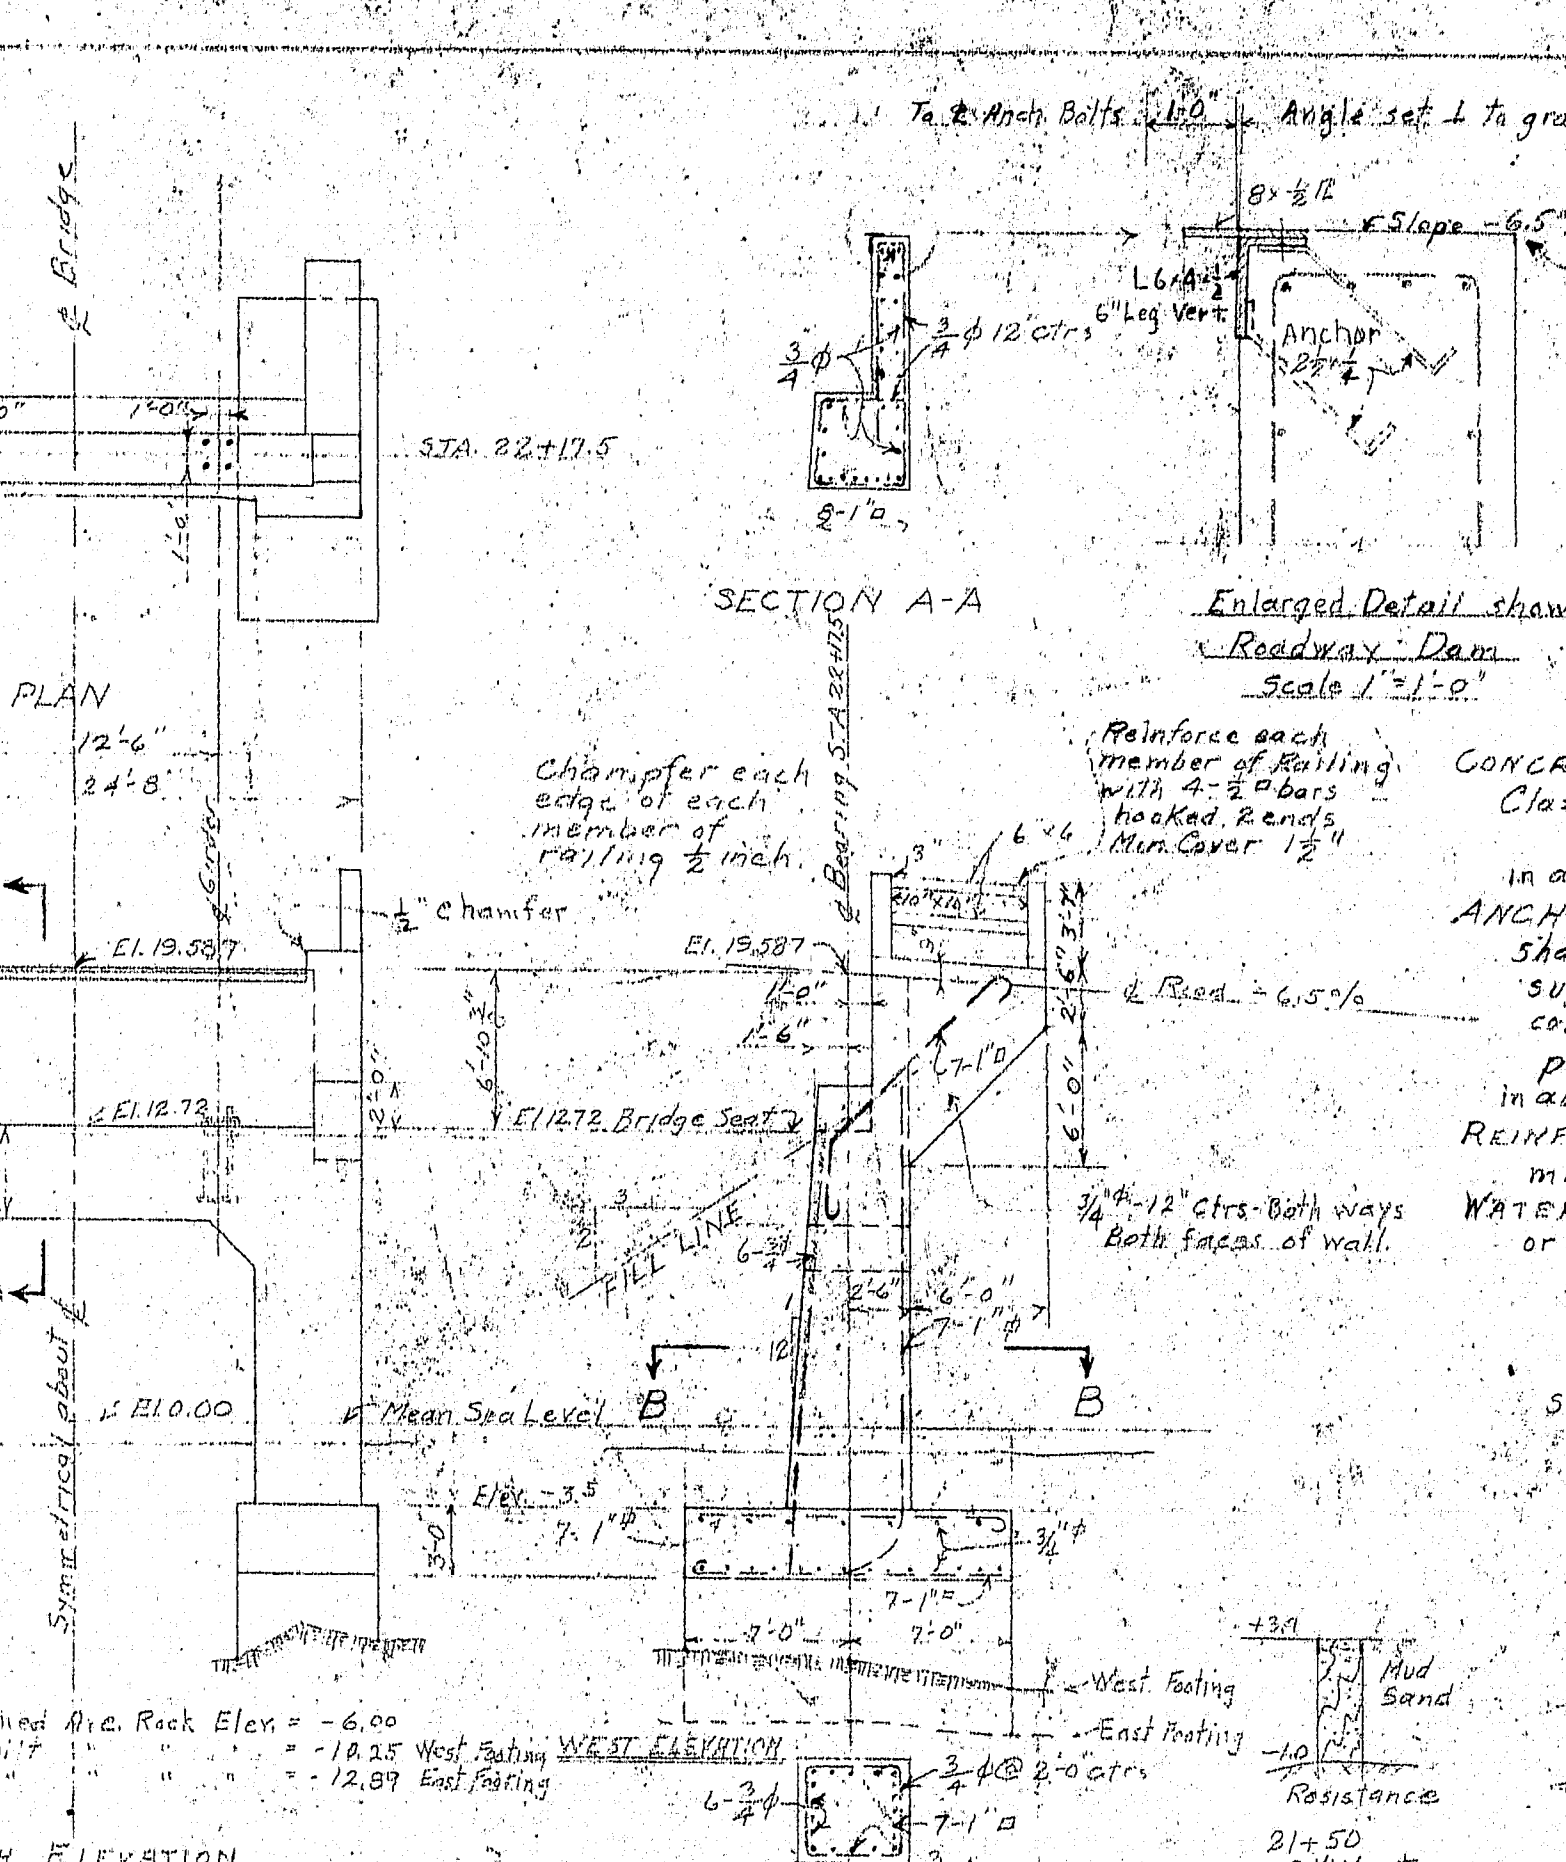 To ℄ Anch. Bolts 1'-0" Angle set ⊥ to gra
℄ Bridge
8 x ½ ℄
Slope - 6.5"
L 6x4x½
6" Leg Vert.
Anchor
2½ x ¼
¾ φ
¾ φ 12" ctrs
0"
1'-0"
STA. 22+17.5
1'-0"
8-1"□
SECTION A-A
Enlarged Detail show
Roadway Dam
Scale 1"=1'-0"
PLAN
12'-6"
24'-8"
℄ Girder
Champfer each
edge of each
member of
railing ½ inch.
℄ Bearing STA 22+17.5
Reinforce each
member of Railing
with 4-½□ bars
hooked 2 ends
Min. Cover 1½"
CONCR
Cla
3"
6"x6
10"x10"
3'-7"
in a
ANCH
Sha
su
co
½" Chamfer
El. 19.587
El. 19.587
1'-0"
1'-6"
6'-10¾"
2'-6"
℄ Road - 6.5%
7-1"□
6'-0"
P
in a
REINF
m
WATER
or
El. 12.72
2'-0"
El 12.72 Bridge Seat
¾"φ-12" Ctrs-Both ways
Both faces of wall.
3
2
FILL LINE
6-¾φ
2'-6"
6'-0"
7-1"φ
1
12
B
B
Symmetrical about ℄
El 0.00
Mean Sea Level
S
Elev. -3.5
7-1"φ
3'-0"
¾"φ
7-1"□
7'-0"
7'-0"
West Footing
East Footing
+3.9
Mud
Sand
-1.0
Resistance
21+50
Rock Elev. = -6.00
" " " = -10.25 West Footing
" " " = -12.89 East Footing
WEST ELEVATION
6-¾φ
¾ φ @ 2'-0" ctrs
7-1"□
ELEVATION